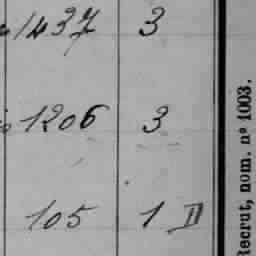 1437 3
1206 3
105 1 II
Recrut, nom. nº 1003.